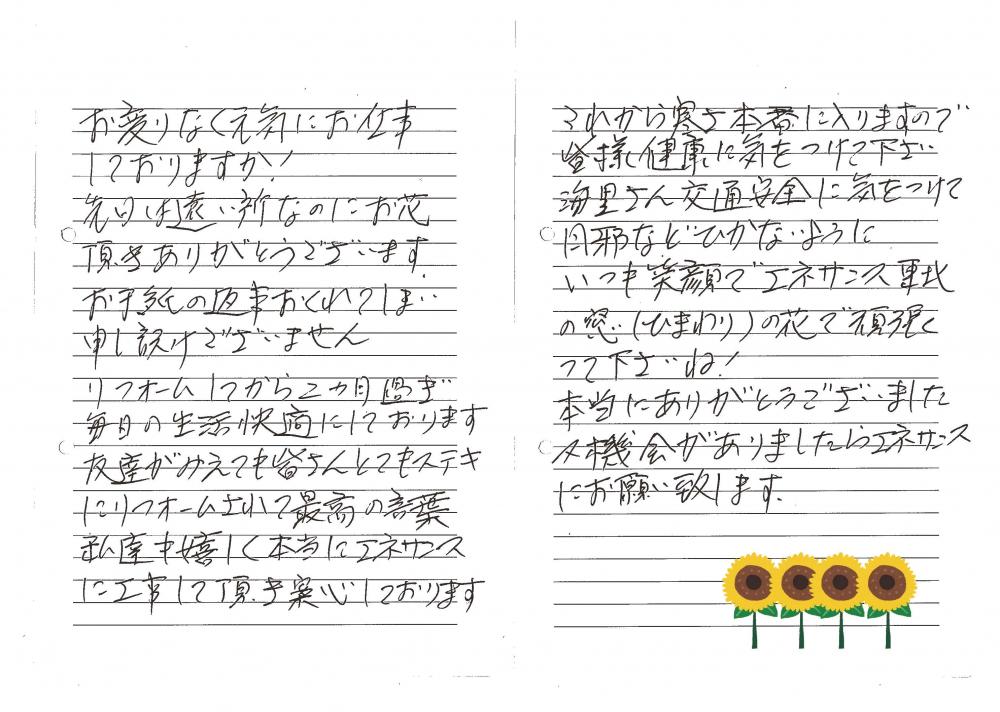 お変りなく元気にお仕事
しておりますか!
先日は遠い所なのにお花
頂きありがとうございます.
お手紙の返事おくれてしまい
申し訳けございません
リフォームしてから2ヵ月過ぎ
毎日の生活快適にしております
友達がみえても皆さんとてもステキ
にリフォームされて最高の言葉
私達も嬉しく本当にエネサンス
に工事して頂き安心しております
これから寒さ本番に入りますので
皆様健康に気をつけて下さい
海里さん交通安全に気をつけて
風邪などひかないように
いつも笑顔でエネサンス東北
の窓い(ひまわり)の花で頑張く
つて下さいね!
本当にありがとうございました
又機会がありましたらエネサンス
にお願い致します.